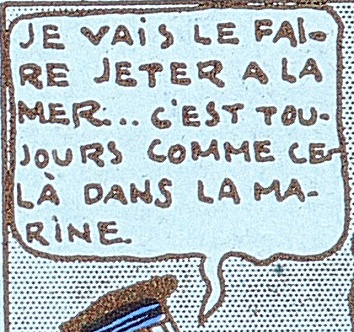 JE VAIS LE FAI-
RE JETER A LA
MER... C'EST TOU-
JOURS COMME CE-
LÀ DANS LA MA-
RINE.